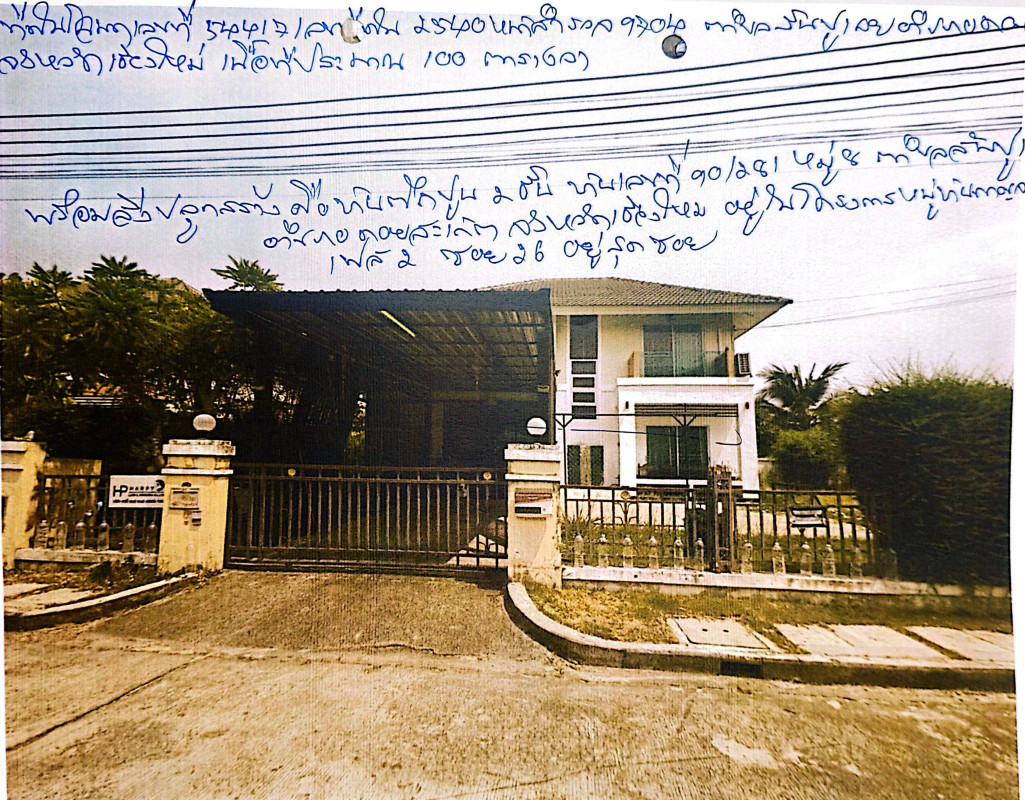 ที่ดินโฉนดเลขที่ 54417 เลขที่ดิน 2540 หน้าสำรวจ 9704 ตำบลสันปูเลย อำเภอดอย
จังหวัดเชียงใหม่ เนื้อที่ประมาณ 100 ตารางวา
พร้อมสิ่งปลูกสร้าง คือบ้านตึกปูน 2 ชั้น บ้านเลขที่ 90/281 หมู่ 8 ตำบลสันปู
อำเภอดอยสะเก็ด จังหวัดเชียงใหม่ อยู่ในโครงการหมู่บ้าน
เฟส 2 ซอย 26 อยู่สุดซอย
HP